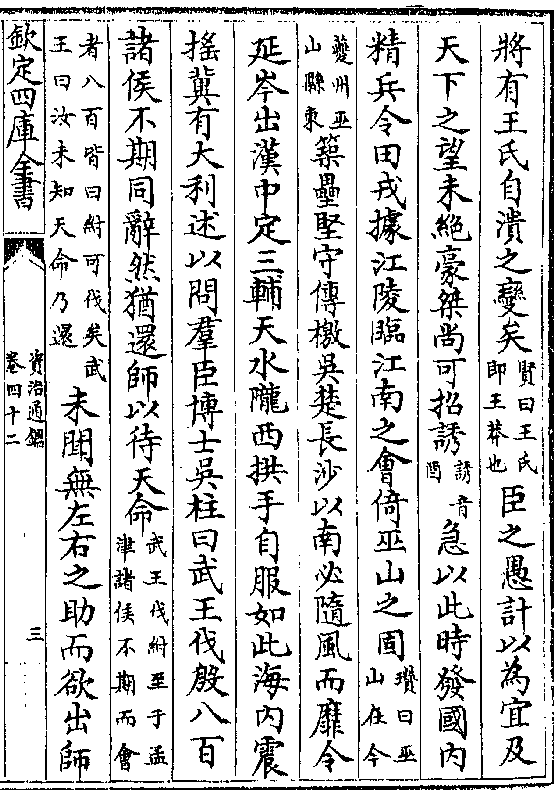 將有王氏自潰之變矣賢曰王氏即王莽也臣之愚計以為宜及
天下之望未絶豪桀尚可招誘誘音酉急以此時發國內
精兵令田戎據江陵臨江南之會倚巫山之固瓚曰巫山在今
夔州巫山縣東築壘堅守傳檄吳楚長沙以南必隨風而靡令
延岑出漢中定三輔天水隴西拱手自服如此海內震
搖冀有大利述以問羣臣博士吳柱曰武王伐殷八百
諸侯不期同辭然猶還師以待天命武王伐紂至于孟津諸侯不期而會
者八百皆曰紂可伐矣武王曰汝未知天命乃還未聞無左右之助而欲出師
欽定四庫全書
資治通鑑
卷四十二
三